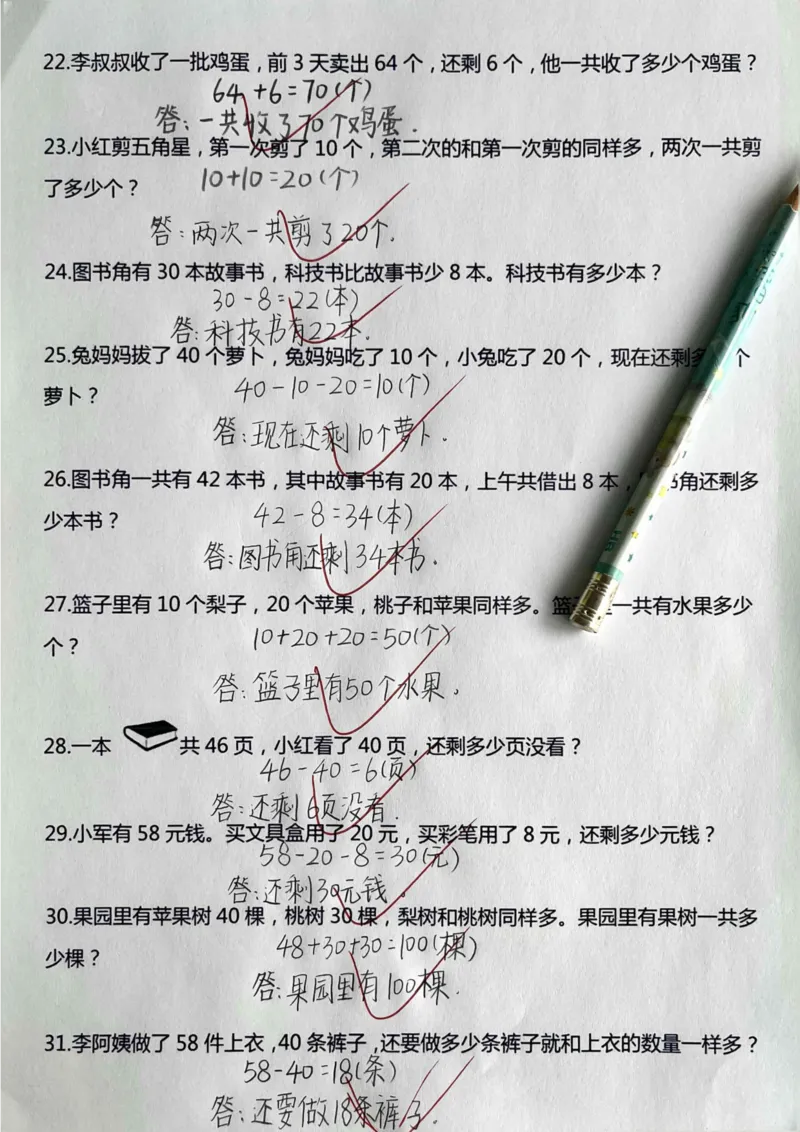 22.李叔叔收了一批鸡蛋，前3天卖出64个，还剩6个，他一共收了多少个鸡蛋？
64+6=70(个)
答：一共收了70个鸡蛋.
23.小红剪五角星，第一次剪了10个，第二次的和第一次剪的同样多，两次一共剪
了多少个？ 10+10=20(个)
答：两次一共剪了20个.
24.图书角有30本故事书，科技书比故事书少8本。科技书有多少本？
30-8=22(本)
答：科技书有22本.
25.兔妈妈拔了40个萝卜，兔妈妈吃了10个，小兔吃了20个，现在还剩多 个
萝卜？ 40-10-20=10(个)
答：现在还剩10个萝卜.
26.图书角一共有42本书，其中故事书有20本，上午共借出8本， 书角还剩多
少本书？ 42-8=34(本)
答：图书角还剩34本书.
27.篮子里有10个梨子，20个苹果，桃子和苹果同样多。篮 里一共有水果多少
个？ 10+20+20=50(个)
答：篮子里有50个水果.
28.一本 共46页，小红看了40页，还剩多少页没看？
46-40=6(页)
答：还剩6页没看.
29.小军有58元钱。买文具盒用了20元，买彩笔用了8元，还剩多少元钱？
58-20-8=30(元)
答：还剩30元钱.
30.果园里有苹果树40棵，桃树30棵，梨树和桃树同样多。果园里有果树一共多
少棵？ 48+30+30=100(棵)
答：果园里有100棵.
31.李阿姨做了58件上衣，40条裤子，还要做多少条裤子就和上衣的数量一样多？
58-40=18(条)
答：还要做18条裤子.